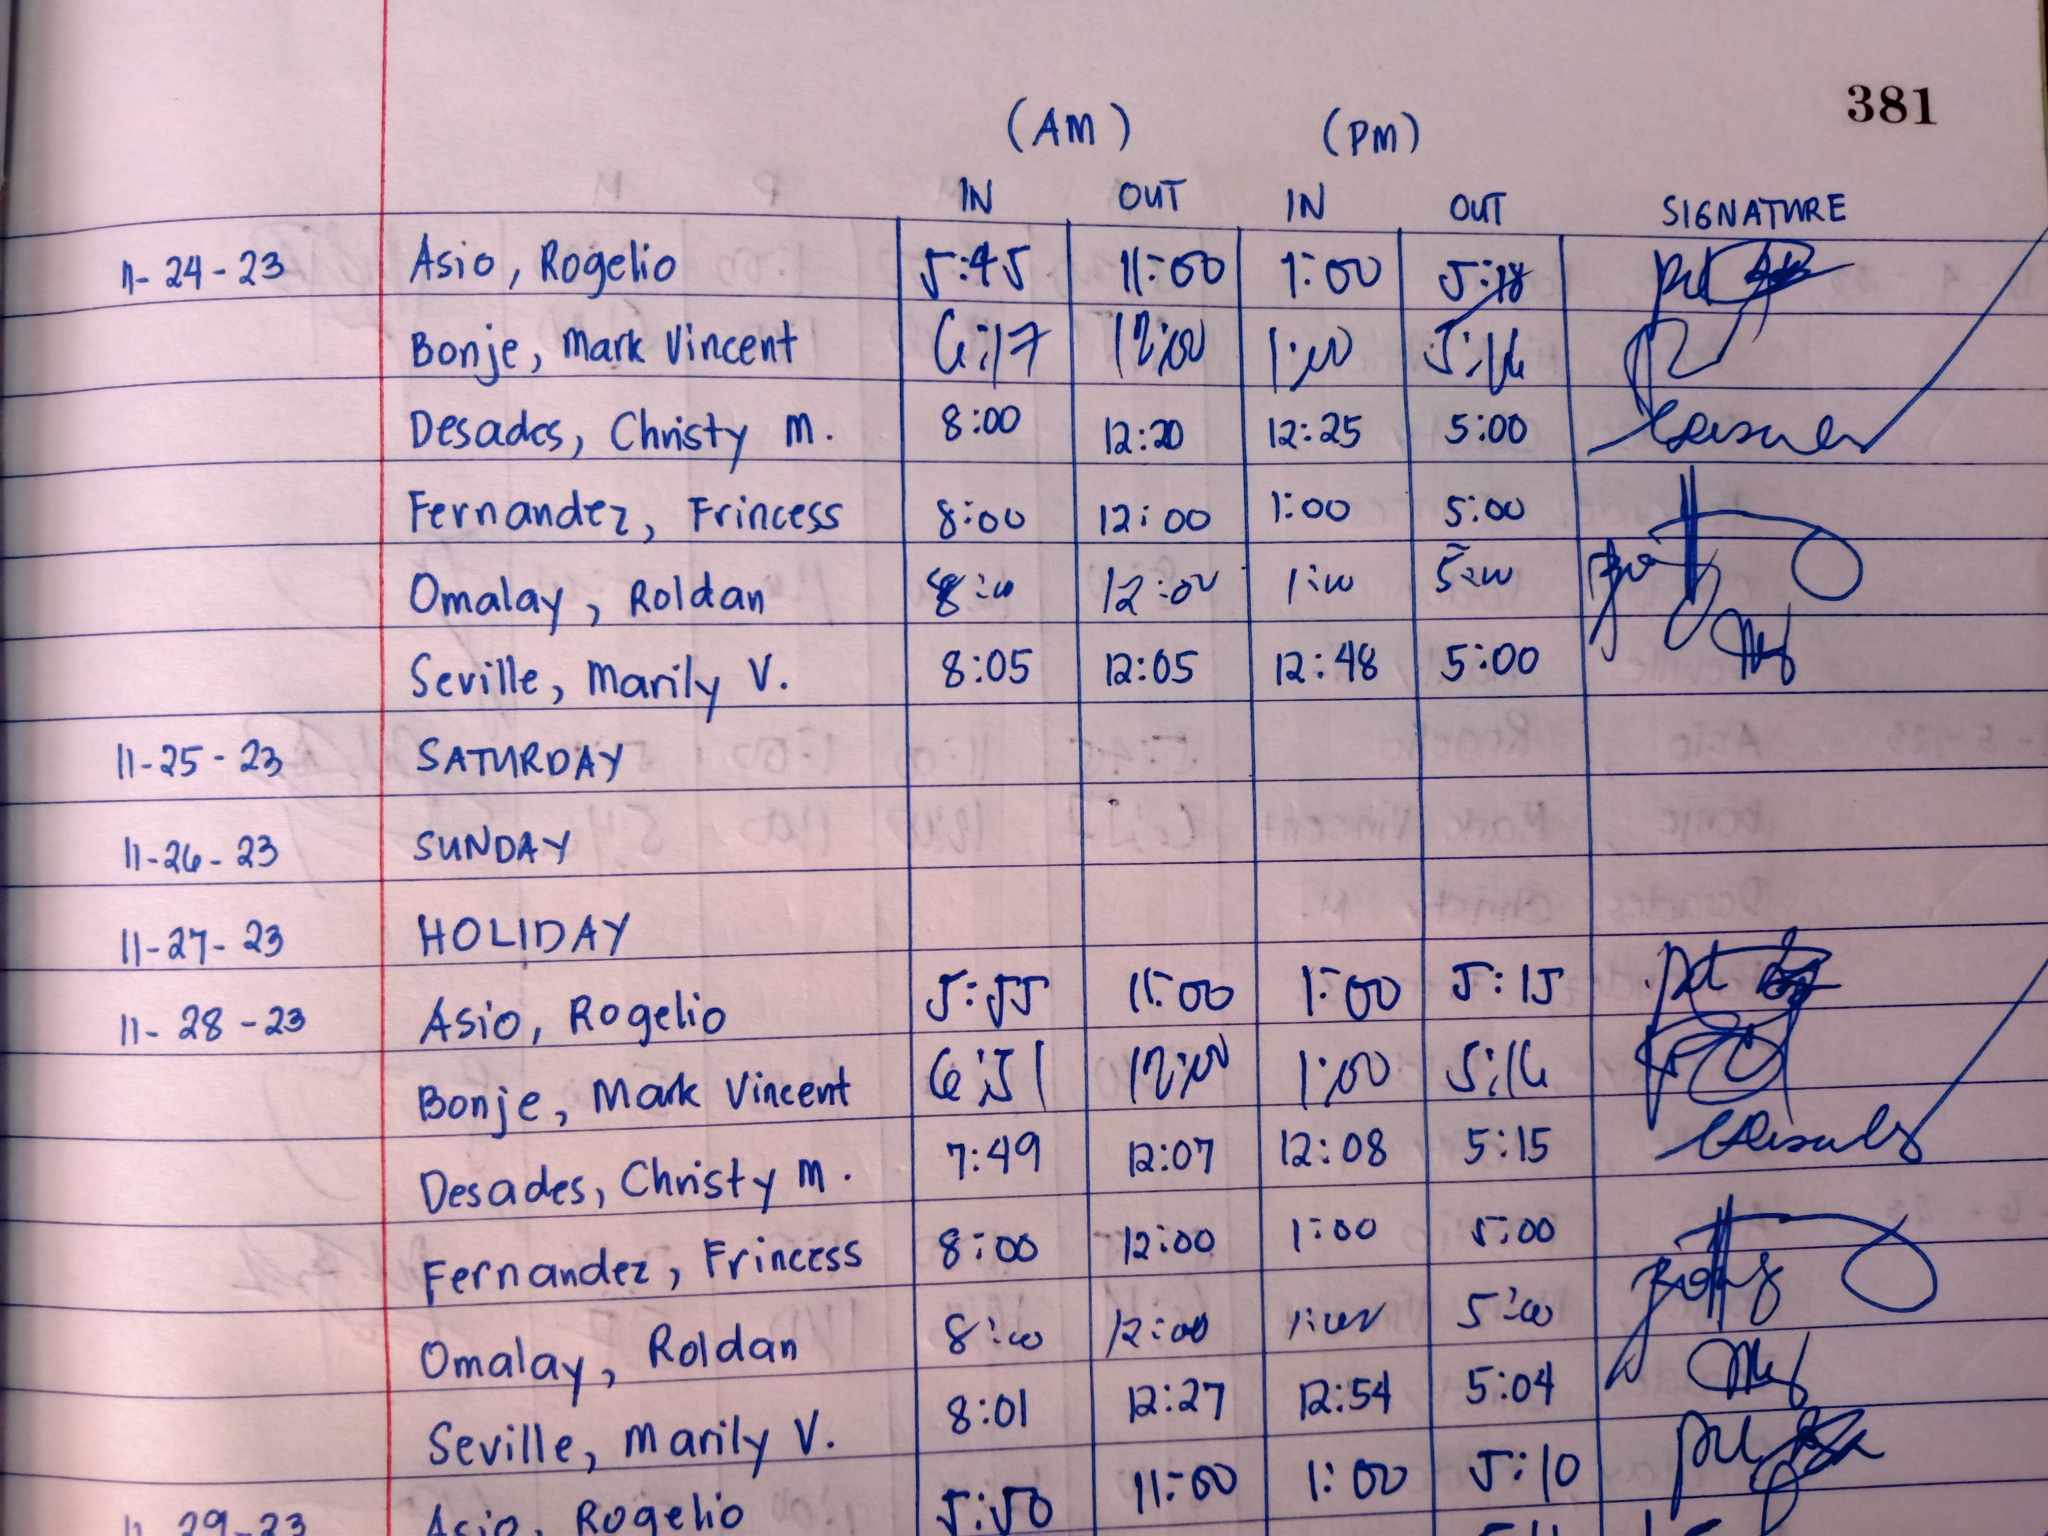 381
(AM) (PM)
IN OUT IN OUT SIGNATURE
11-24-23 Asio, Rogelio 5:45 11:00 1:00 5:18
Bonje, Mark Vincent 6:17 12:00 1:00 5:16
Desades, Christy M. 8:00 12:20 12:25 5:00
Fernandez, Frincess 8:00 12:00 1:00 5:00
Omalay, Roldan 8:00 12:00 1:00 5:00
Seville, Marily V. 8:05 12:05 12:48 5:00
11-25-23 SATURDAY
11-26-23 SUNDAY
11-27-23 HOLIDAY
11-28-23 Asio, Rogelio 5:55 11:00 1:00 5:15
Bonje, Mark Vincent 6:51 12:00 1:00 5:16
Desades, Christy M. 7:49 12:07 12:08 5:15
Fernandez, Frincess 8:00 12:00 1:00 5:00
Omalay, Roldan 8:00 12:00 1:00 5:00
Seville, Marily V. 8:01 12:27 12:54 5:04
11-29-23 Asio, Rogelio 5:50 11:00 1:00 5:10